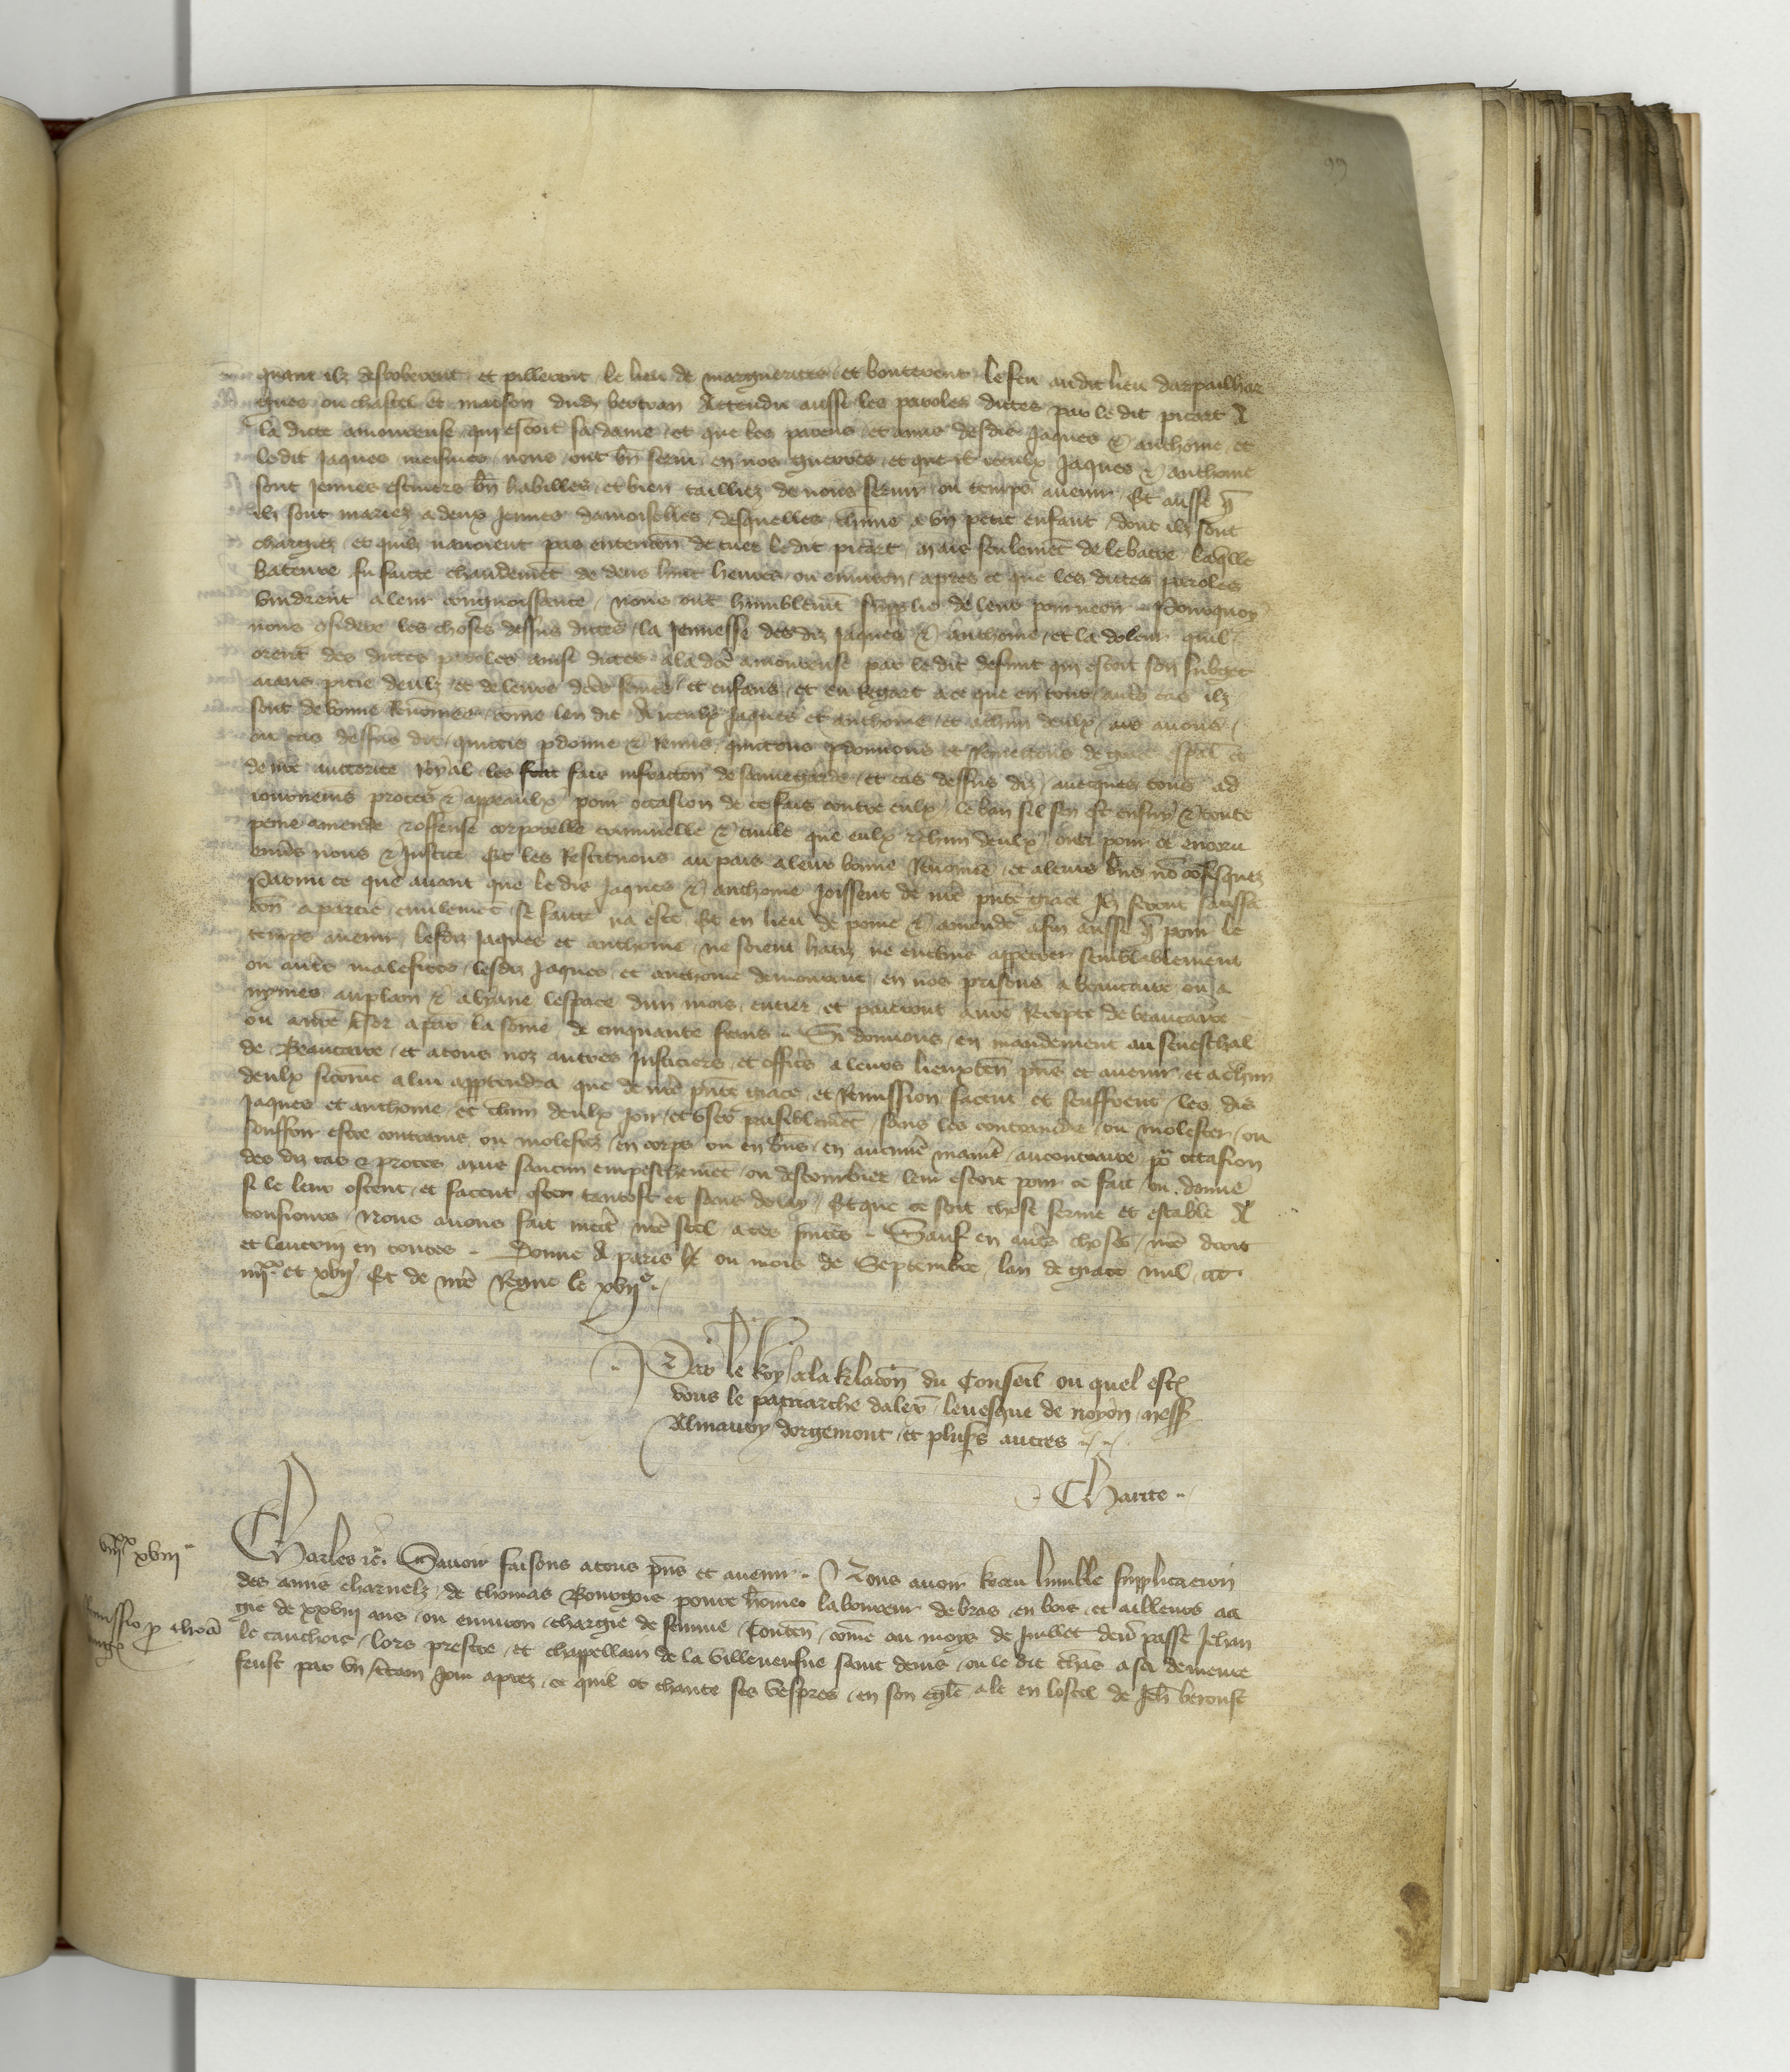 99
quant ilz desroberent et pillerent le lieu de marguerites et bouterent le feu audit lieu daspailhar
gues ou chastel et maison dud bertran Attendu aussi les paroles dittes par le dit picart A
la dicte amoureuse qui estoit sa dame et que les parens et amis desdis Jaques & anthoine et
ledit Jaques meismes nous ont bn̄ serui en nos guerres et que iceulx Jaques & anthoine
sont Jennes escuiers bn̄ habilles et bien tailliez de nous seruir ou temps auenir Et aussi q̄
ilz sont mariez a deux Jennes damoiselles desquelles chūne a vn petit enfant dont ilz sont
chargiez et quilz nauoient pas entencōn de tuer ledit picart mais seulemēt de le batre laqͣlle
bateure fu faicte chaudemēt de deus huit heures ou enuiron apres ce que les dictes paroles
vindrent a leur congnoissance nous ont humblemt̄ supplie de leur pourueoir Pourquoy
nous ɔsidere les choses dessus dictes la Jennesse des diz Jaques & anthoine et la doleur quil
orent des dictes paroles ainsi dictes a la dcē amoureuse par le dit defunt qui estoit son subget
aians pitie deulz et de leurs dcēs femes et enfans et eu Regart a ce que en tous autˢ cas ilz
sont de bonne Renomee cōme len dit A iceulx Jaques et anthoine et a chūn deulx auons
ou cas dessus dit quictie pdonne & Remis quittons pdonnons et Remettons de grace espāl et
de nrē auctorite Royal les fait fais infraccōn de sauuegarde et cas dessus diz auecques tous ad
iournemēs proces & appeaulx pour occasion de ce fais contre eulx le ban sil sen est ensuy & toute
peine amende & offense corporelle criminelle & ciuile que eulx & chūn deulx ont pour ce encoru
enuˢ nous & Justice Et les Restituons au pais a leur bonne Renomee et a leurs bn̄s nō ɔfisquez
Parmi ce que auant que le dis Jaques & anthoine Joissent de nrē pn̄te grace Ilz feront satisfac
cōn a partie ciuilemēt se faitte na este Et en lieu de peine & amende afin aussi q̄ pour le
temps auenir lesdiz Jaques et anthoine ne soient hatiz ne enclins apperer semblablement
ou autˢ malefices lesdiz Jaques et anthoine demourront en nos prisons a beaucaire ou a
nymes au plain & a lyaue lespace dun mois entier et paieront a nrē Recepte de beaucaire
ou a nrē tresor a par la sōme de cinquante frans Si donnons en mandement au seneschal
de Beaucaire et a tous noz autres Justiciers et officˢ a leurs lieuxten̄ pn̄s et auenir et a chūn
deulx sicōme a lui apptendra que de nrē pn̄te grace et Remission facent et seuffrent les dis
Jaques et anthoine et chūn deulx Joir et vser paisiblemēt sans les contraindre ou molester ou
souffrir estre contrains ou molestez en corps ou en bn̄s en aucune maniē au contraire poᷣ occasion
des diz cas & proces mais saucun empeschemēt ou destourbier leur estoit pour ce fait ou donne
si le leur ostent et facent oster tantost et sans delay Et que ce soit chose ferme et estable A
tousiours Nous auons fait mectˢ nrē scel a ces pn̄tes Sauf en autˢ choses nrē droit
et lautruy en toutes Donne A paris ou mois de Septembre lan de grace mil ccc
iiijˣˣ et xvij Et de nrē Regne le xvijᵉ
Par le Roy a la Relacōn du Conseil ou quel estiez
vous le patriarche dalexᵉ leuesque de noyon mess
Almaury dorgemont et plusˢ autres
Charite
viijˣˣ xviij
Charles &c̄ Sauoir faisons a tous pn̄s et auenir Nous auoir Receu lumble supplicacion
Remissio p̱ thoā
des amis charnelz de thomas Bourgois poure hōme laboureur de bras en bois et ailleurs aa
gie de xxviij ans ou enuiron chargie de femme Conten̄ cōme ou moys de Juillet derͬ passe Jehan
le cauchois lors prestre et chappellain de la villeneufue saint denis ou le dit thās a sa demeure
feust par vn ctain Jour aprez ce quil ot chante ses vespres en son eglē ale en lostel de Jehn̄ berouse